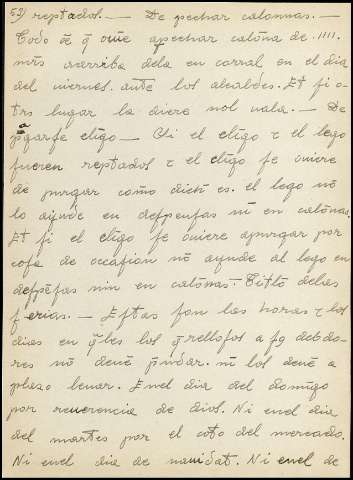 52) reptados. — De pechar calonnas. —
Todo õe q̃ oũe a pechar calõna de .IIII.
mr̃s arriba dela en corral en el dia
del viernes. ante los alcaldes. Et si o-
tro lugar la diere nol uala. — De
pgarse cligo — Si el cligo τ el lego
fueren reptados τ el cligo se ouiere
de purgar como dicħ es. el lego nõ
lo aiude en despensas ni en calõnas.
Et si el cligo se ouiere apurgar por
cosa de occasion nõ aiude al lego en
despẽsas nin en calonas. — Titlõ delas
ferias. — Estas son las horas τ los
dias en q̃les los q̃rellosos a sꝯ debdo-
res nõ deuẽ p̃ndar. ni los deuẽ a
plazo leuar. Enel dia del domĩgo
por reuerencia de dios. Ni enel dia
del martes por el coto del mercado.
Ni enel dia de nauidat. Ni enel de